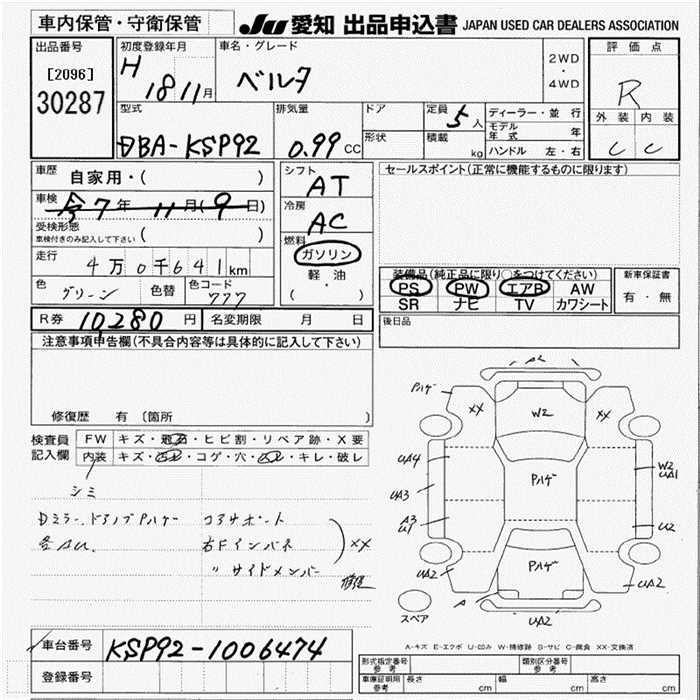 車内保管・守衛保管
JU 愛知 出品申込書 JAPAN USED CAR DEALERS ASSOCIATION
出品番号
[2096]
30287
初度登録年月
H 18 11月
車名・グレード
ベルタ
2WD
・
4WD
評価点
R
外装 内装
C C
型式
DBA-KSP92
排気量
0.99 CC
ドア
形状
定員 5人
積載 kg
ディーラー・並行
モデル年式 年
ハンドル 左・右
車歴
自家用・( )
車検
令7年11月(9日)
受検形態
車検付きのみ記入して下さい ( )
走行
4万0千641km
色
グリーン
色替
色コード
777
シフト
AT
冷房
AC
燃料
ガソリン
軽油
( ・ )
セールスポイント(正常に機能するものに限ります)
装備品(純正品に限り○をつけてください)
PS PW エアB AW
SR ナビ TV カワシート
新車保証書
有・無
R券 10,280円 名変期限 月 日
後日品
注意事項申告欄(不具合内容等は具体的に記入して下さい)
修復歴 有 〔箇所
検査員
記入欄
FW キズ・飛石・ヒビ割・リペア跡・X要
内装 キズ・汚レ・コゲ・穴・凹レ・キレ・破レ
シミ
Dミラー、ドアノブPハゲ コアサポート
各AU. 右Fインパネ XX
〃 サイドメンバー 修追
Pハゲ
XX
W2
XX
UA4
UA3
A3
U1
UA2
Pハゲ
Pハゲ
W2
UA1
U2
UA2
A
UA2
スペア
A-キズ E-エクボ U-凹み W-補修跡 S-サビ C-腐食 XX-交換済
車台番号
KSP92-1006474
登録番号
形式指定番号
参考
類別区分番号
参考
車庫証明用
参考
長さ cm
幅 cm
高さ cm